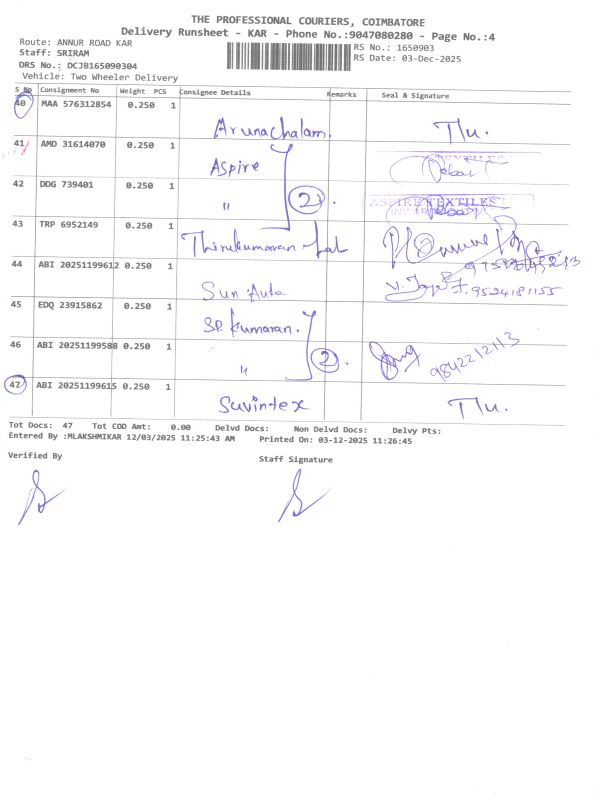 THE PROFESSIONAL COURIERS, COIMBATORE
Delivery Runsheet - KAR - Phone No.:9047080280 - Page No.:4
Route: ANNUR ROAD KAR
Staff: SRIRAM
DRS No.: DCJB165090304
Vehicle: Two Wheeler Delivery
RS No.: 1650903
RS Date: 03-Dec-2025
S No Consignment No Weight PCS Consignee Details Remarks Seal & Signature
40 MAA 576312854 0.250 1
Arunachalam. TLu.
41 AMD 31614070 0.250 1
Aspire
42 DDG 739401 0.250 1
" 2 ASPIRE TEXTILES
43 TRP 6952149 0.250 1
Thirukumaran
44 ABI 20251199612 0.250 1
Sun Auto 9524181155
45 EDQ 23915862 0.250 1
SP. Kumaran.
46 ABI 20251199588 0.250 1
" 2 9842212113
47 ABI 20251199615 0.250 1
Suvintex TLu.
Tot Docs: 47 Tot COD Amt: 0.00 Delvd Docs: Non Delvd Docs: Delvy Pts:
Entered By :MLAKSHMIKAR 12/03/2025 11:25:43 AM Printed On: 03-12-2025 11:26:45
Verified By
Staff Signature